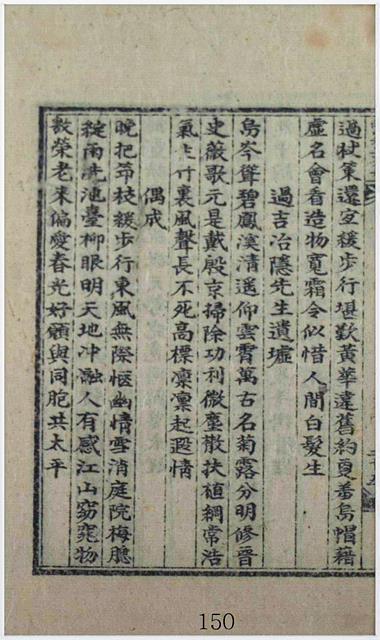 過杖策還宜緩步行堪歎黃華違舊約更羞烏帽藉
虛名會看造物寬霜令似惜人間白髮生
過吉冶隱先生遺墟
烏岑聳碧鳳溪清遙仰雲霄萬古名菊露分明修晉
史薇歌元是戴殷京掃除功利微塵散扶植綱常浩
氣竹裏風聲長不死高標凜凜起遐情
偶成
晚把笻枝緩步行東風無際愜幽情雪消庭院梅腮
綻雨洗池臺柳眼明天地冲融人有感江山窈窕物
敷榮老來偏愛春光好願與同胞共太平
150